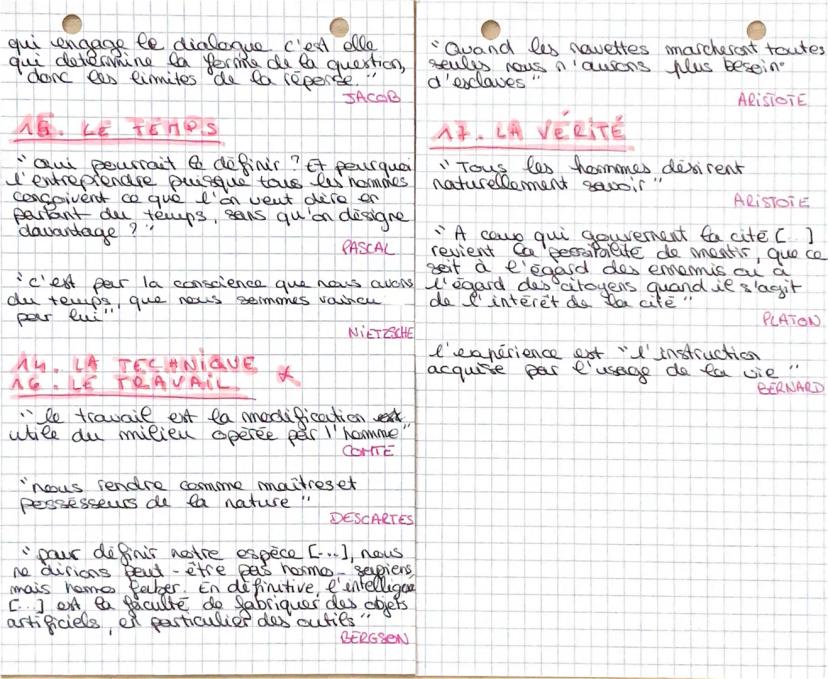 qui engage le dialogue c'est elle
qui détermine la forme de la question,
donc les limites de la réponse."
JACOB
15. LE TEMPS
"Qui pourrait le définir ? Et pourquoi
l'entreprendre puisque tous les hommes
conçoivent ce que l'on veut dire en
parlant du temps, sans qu'on désigne
davantage ?"
PASCAL
"c'est par la conscience que nous avons
du temps, que nous sommes vaincu
par lui"
NIETZSCHE
14. LA TECHNIQUE
16. LE TRAVAIL
"le travail est la modification
utile du milieu opérée par l'homme"
COMTE
"nous rendre comme maîtres et
possesseurs de la nature"
DESCARTES
"pour définir notre espèce [...], nous
ne dirions peut-être pas homo-sapiens,
mais homo faber. En définitive, l'intelligence
[...] est la faculté de fabriquer des objets
artificiels, en particulier des outils"
BERGSON
"Quand les navettes marcheront toutes
seules nous n'aurons plus besoin
d'esclaves"
ARISTOTE
17. LA VÉRITÉ
"Tous les hommes désirent
naturellement savoir"
ARISTOTE
"A ceux qui gouvernent la cité [...]
revient la possibilité de mentir, que ce
soit à l'égard des ennemis ou à
l'égard des citoyens quand il s'agit
de l'intérêt de la cité"
PLATON
l'expérience est "l'instruction
acquise par l'usage de la vie"
BERNARD